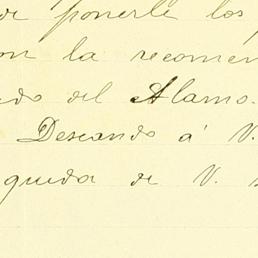 de ponerle los
con la recomen
ido del Alamo.
Deseando á V.
queda de V.